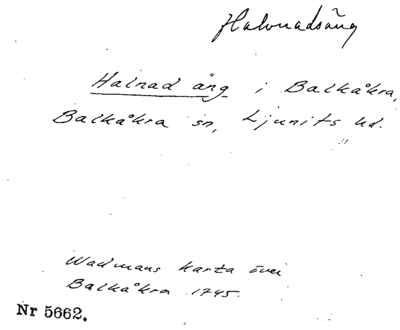 Halvnadsäng
Halnad äng i Balkåkra,
Balkåkra sn, Ljunits hd.
Wadmans karta över
Balkåkra 1745.
Nr 5662.